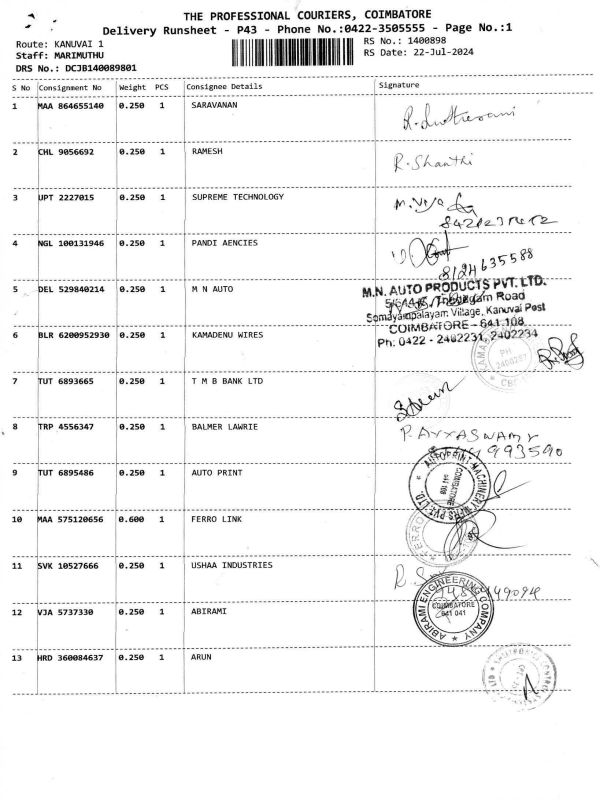 THE PROFESSIONAL COURIERS, COIMBATORE
Delivery Runsheet - P43 - Phone No.:0422-3505555 - Page No.:1
Route: KANUVAI 1
RS No.: 1400898
Staff: MARIMUTHU
RS Date: 22-Jul-2024
DRS No.: DCJB140089801
S No Consignment No Weight PCS Consignee Details Signature
1 MAA 864655140 0.250 1 SARAVANAN
2 CHL 9056692 0.250 1 RAMESH R. Shanthi
3 UPT 2227015 0.250 1 SUPREME TECHNOLOGY
4 NGL 100131946 0.250 1 PANDI AENCIES
8124635588
5 DEL 529840214 0.250 1 M N AUTO
M.N. AUTO PRODUCTS PVT. LTD.
Road
Somayampalayam Village, Kanuvai Post
COIMBATORE - 641 108
Ph: 0422 - 2402231, 2402234
6 BLR 6200952930 0.250 1 KAMADENU WIRES
7 TUT 6893665 0.250 1 T M B BANK LTD
8 TRP 4556347 0.250 1 BALMER LAWRIE P. AYYASWAMY
9 TUT 6895486 0.250 1 AUTO PRINT
AUTOPRINT MACHINERY MFRS PVT. LTD.
COIMBATORE
641 108
10 MAA 575120656 0.600 1 FERRO LINK
FERRO
11 SVK 10527666 0.250 1 USHAA INDUSTRIES
12 VJA 5737330 0.250 1 ABIRAMI
ABIRAMI ENGINEERING COMPANY
COIMBATORE
641 041
13 HRD 360084637 0.250 1 ARUN